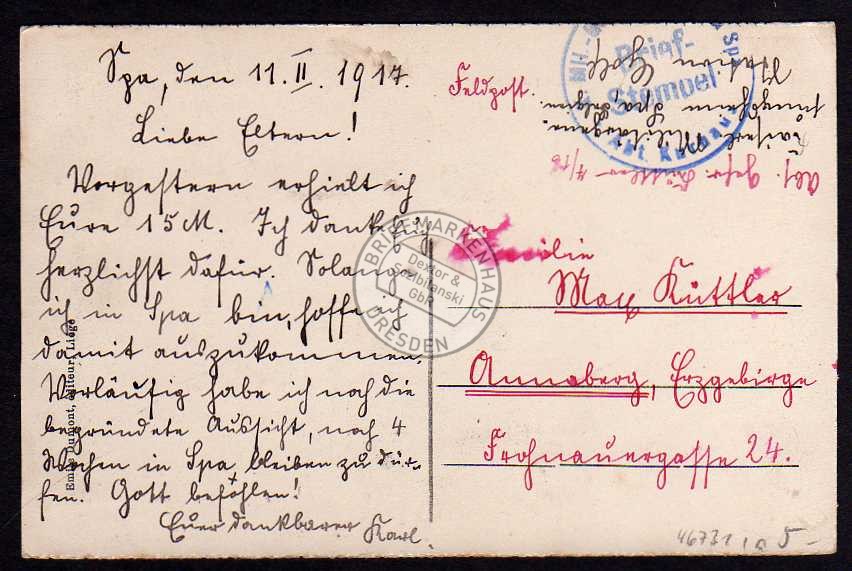 Spa, den 11. II. 1917.
Liebe Eltern!
Vorgestern erhielt ich
Eure 15 M. Ich danke Euch
herzlichst dafür. Solange
ich in Spa bin, hoffe ich
damit auszukommen,
Vorläufig habe ich noch die
begründete Aussicht, noch 4
Wochen in Spa bleiben zu dür-
fen. Gott befohlen!
Euer dankbarer Karl.
Feldpost.
Brief-
Stempel
Abs. Gefr. Küttler
Familie
Max Küttler
Annaberg, Erzgebirge
Frohnauergasse 24.
BRIEFMARKENHAUS
Dektor &
GbR
DRESDEN
Dumont, Editeur, Liège
46731
5-